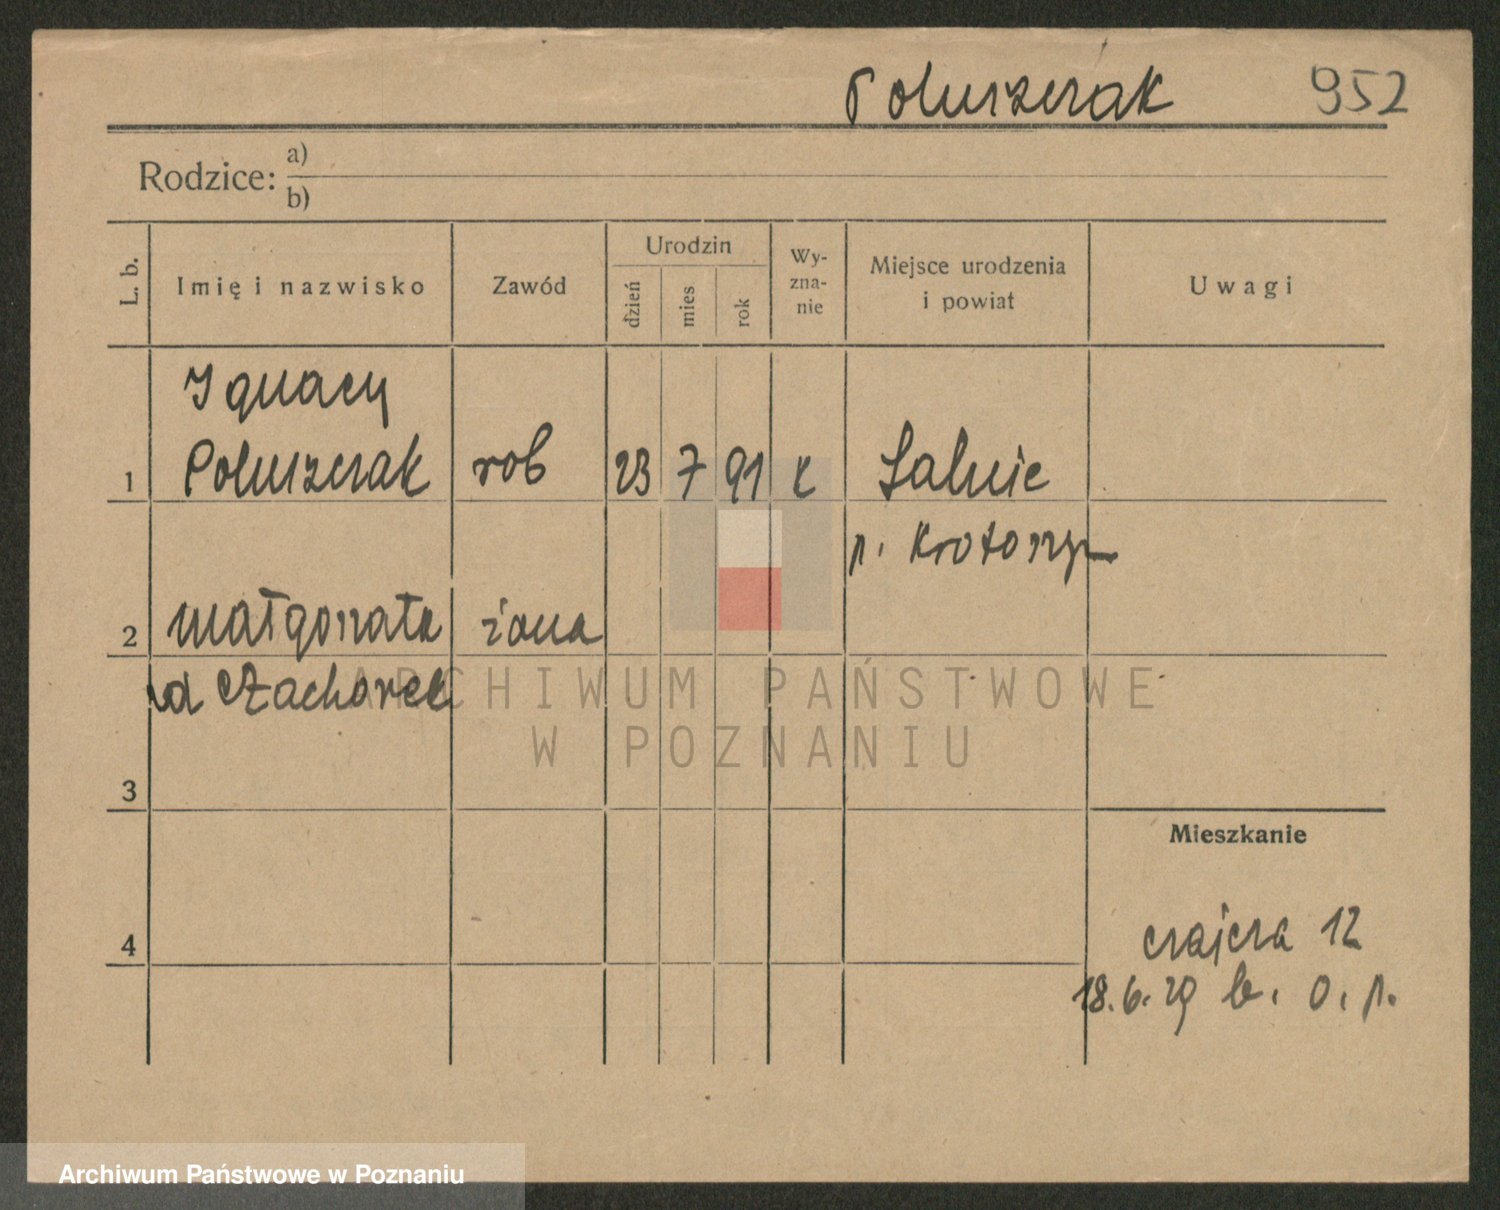 Poluszczak 952
Rodzice: a)
b)
L. b. Imię i nazwisko Zawód Urodzin dzień mies rok Wy-zna-nie Miejsce urodzenia i powiat Uwagi
Ignacy
1 Poluszczak rob 23 7 91 k Salnie
p. Krotoszyn
2 Małgorzata żona
zd Czachorek
3
Mieszkanie
4 czajcza 12
18.6.29 b. o. p.
ARCHIWUM PAŃSTWOWE
W POZNANIU
Archiwum Państwowe w Poznaniu